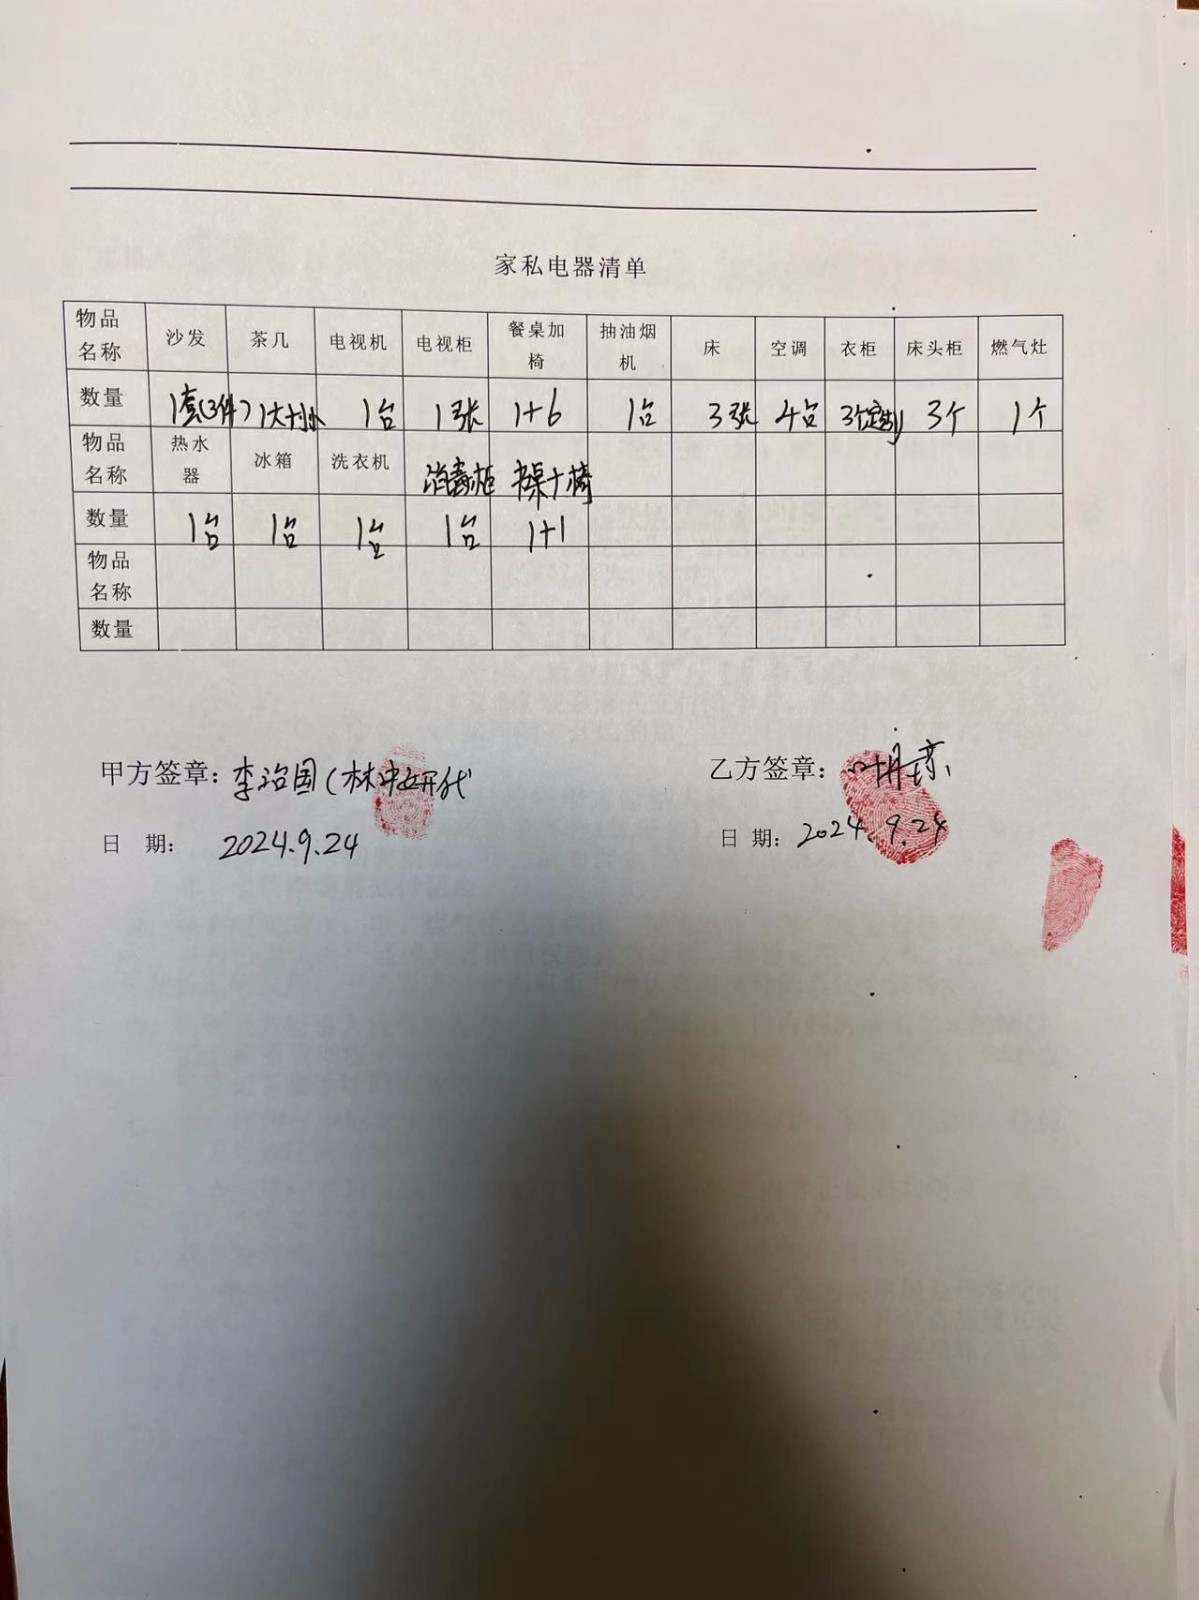 家私电器清单
物品名称 沙发 茶几 电视机 电视柜 餐桌加椅 抽油烟机 床 空调 衣柜 床头柜 燃气灶
数量 1套(3件) 1大1小 1台 1张 1+6 1台 3张 4台 3个定制 3个 1个
物品名称 热水器 冰箱 洗衣机 消毒柜 书桌+椅
数量 1台 1台 1台 1台 1+1
物品名称
数量
甲方签章：李治国(林中妍代 乙方签章：叶丹琼
日 期： 2024.9.24 日 期： 2024.9.24